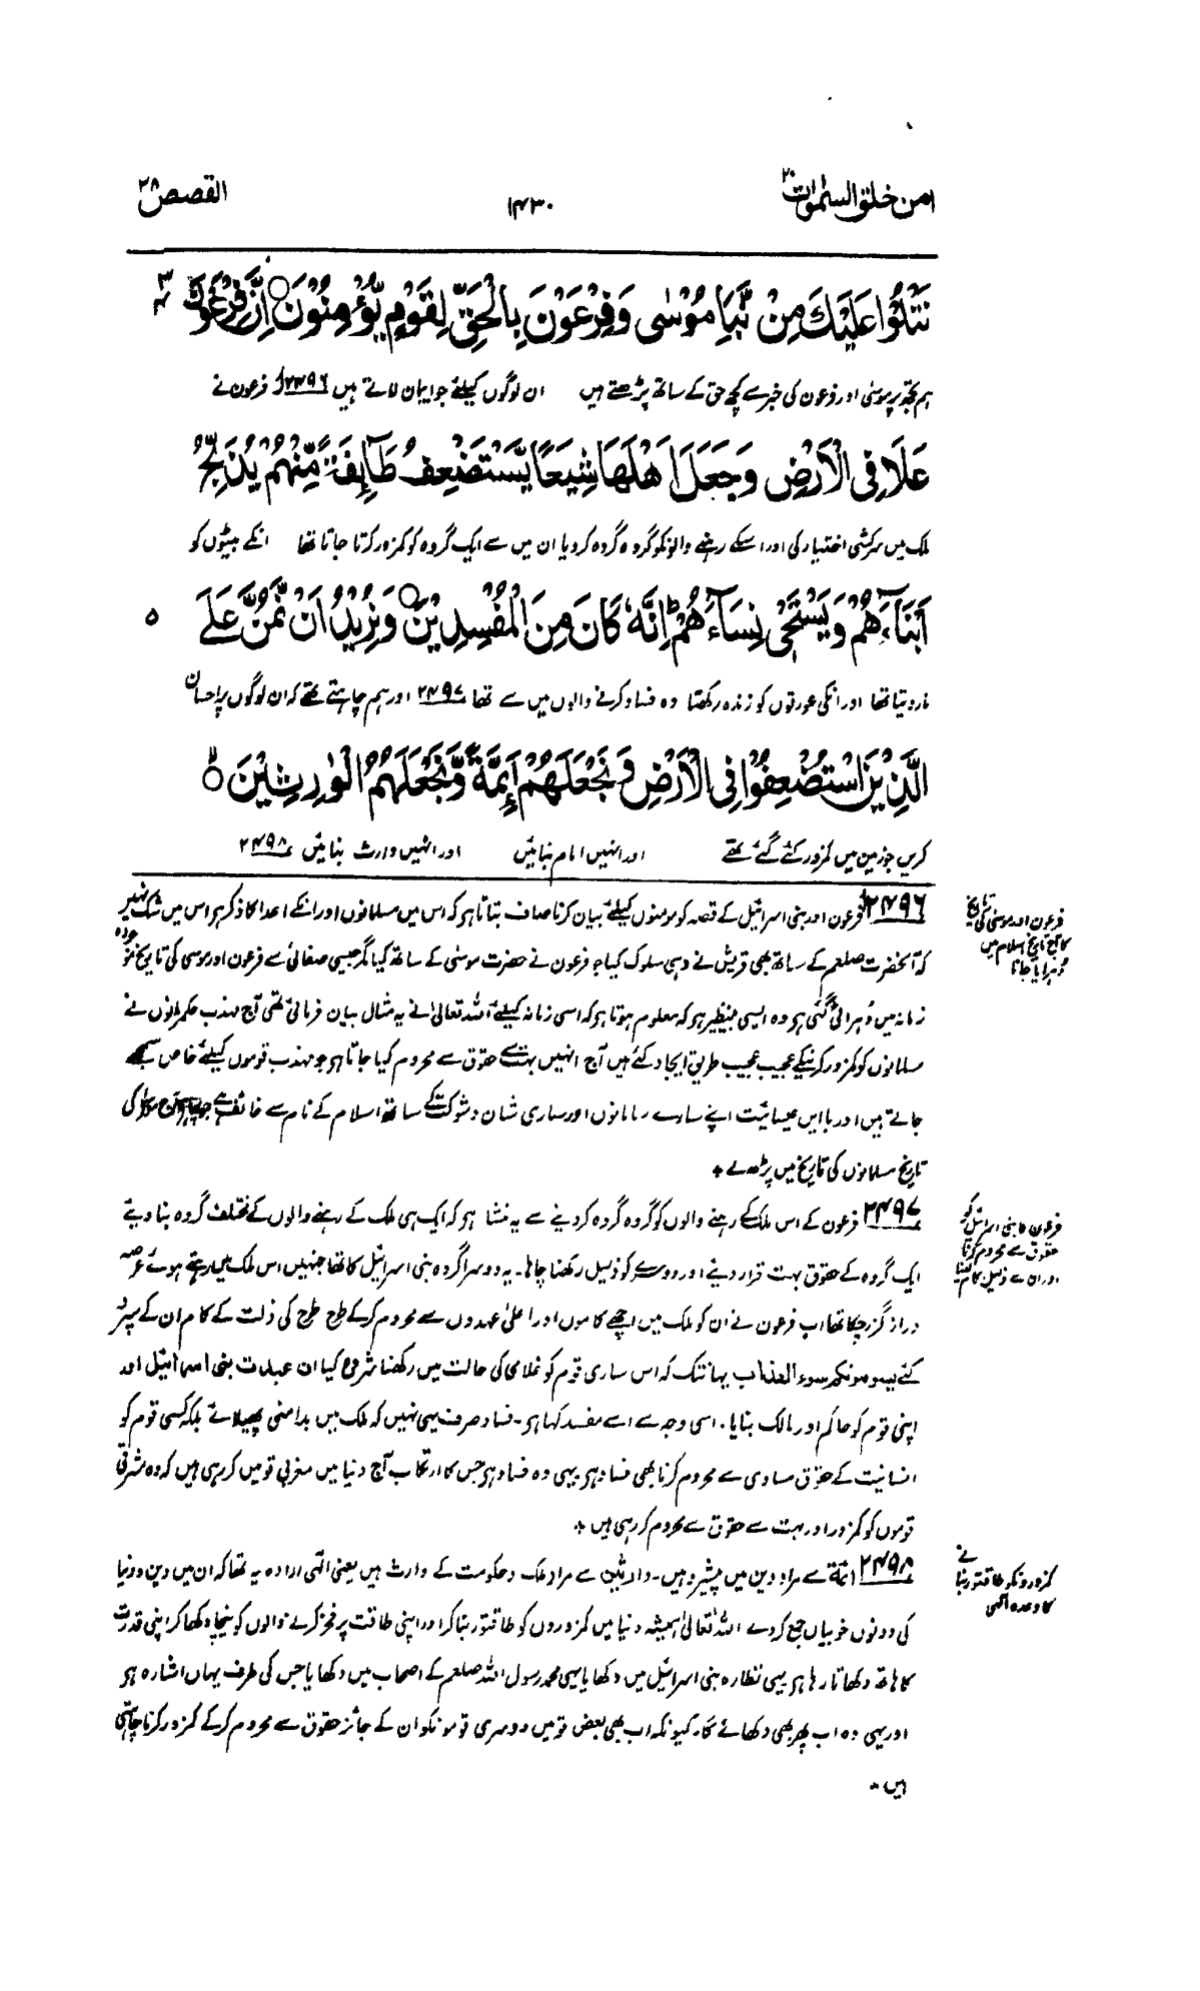 امن خلق السمٰوٰت ۲۰
۱۴۳۰
القصص ۲۸
نَتْلُوْا عَلَيْكَ مِنْ نَّبَاِ مُوْسٰى وَفِرْعَوْنَ بِالْحَقِّ لِقَوْمٍ يُّؤْمِنُوْنَ ○ اِنَّ فِرْعَوْنَ ۳ ۴
ہم تجھ پر موسیٰ اور فرعون کی خبر سے کچھ حق کے ساتھ پڑھتے ہیں ان لوگوں کیلئے جو ایمان لاتے ہیں ۲۴۹۶ فرعون نے
عَلَا فِى الْاَرْضِ وَجَعَلَ اَهْلَهَا شِيَعًا يَّسْتَضْعِفُ طَآئِفَةً مِّنْهُمْ يُذَبِّحُ
ملک میں سرکشی اختیار کی اور اسکے رہنے والونکو گروہ گروہ کردیا ان میں سے ایک گروہ کو کمزور کرتا جاتا تھا انکے بیٹوں کو
اَبْنَآءَهُمْ وَيَسْتَحْىٖ نِسَآءَهُمْ ؕ اِنَّهٗ كَانَ مِنَ الْمُفْسِدِيْنَ ○ وَنُرِيْدُ اَنْ نَّمُنَّ عَلَى ۵
مار دیتا تھا اور انکی عورتوں کو زندہ رکھتا وہ فساد کرنے والوں میں سے تھا ۲۴۹۷ اور ہم چاہتے تھے کہ ان لوگوں پر احسان
الَّذِيْنَ اسْتُضْعِفُوْا فِى الْاَرْضِ وَنَجْعَلَهُمْ اَئِمَّةً وَّنَجْعَلَهُمُ الْوٰرِثِيْنَ ○
کریں جو زمین میں کمزور کئے گئے تھے اور انہیں امام بنائیں اور انہیں وارث بنائیں ۲۴۹۸
۲۴۹۶ فرعون اور بنی اسرائیل کے قصہ کو مومنوں کیلئے بیان کرنا صاف بتاتا ہو کہ اس میں مسلمانوں اور انکے اعدا کا ذکر ہو اس میں شک نہیں
کہ آنحضرت صلعم کے ساتھ بھی قریش نے وہی سلوک کیا جو فرعون نے حضرت موسیٰ کے ساتھ کیا مگر جیسی صفائی سے فرعون اور موسیٰ کی تاریخ موجودہ
زمانہ میں دُہرائی گئی ہو وہ ایسی بینظیر ہو کہ معلوم ہوتا ہو کہ اسی زمانہ کیلئے اللہ تعالیٰ نے یہ مثال بیان فرمائی تھی آج مہذب حکمرانوں نے
مسلمانوں کو کمزور کرنیکے عجیب عجیب طریق ایجاد کئے ہیں آج انہیں بہت سے حقوق سے محروم کیا جاتا ہو جو مہذب قوموں کیلئے خاص سمجھے
جاتے ہیں اور باایں عیسائیت اپنے سارے سامانوں اور ساری شان و شوکت کے ساتھ اسلام کے نام سے خائف ہے کی
تاریخ مسلمانوں کی تاریخ میں پڑھ لے *
۲۴۹۷ فرعون کے اس ملک کے رہنے والوں کو گروہ گروہ کردینے سے یہ منشا ہو کہ ایک ہی ملک کے رہنے والوں کے مختلف گروہ بنا دیئے
ایک گروہ کے حقوق بہت قرار دیئے اور دوسرے کو ذلیل رکھنا چاہا۔ یہ دوسرا گروہ بنی اسرائیل کا تھا جنہیں اس ملک میں رہتے ہوئے عرصہ
دراز گزر چکا تھا اب فرعون نے ان کو ملک میں اچھے کاموں اور اعلیٰ عہدوں سے محروم کرکے طرح طرح کی ذلت کے کام ان کے سپرد
کئے یسومونکم سوء العذاب یہانتک کہ اس ساری قوم کو غلامی کی حالت میں رکھنا شروع کیا ان عبدت بنی اسرائیل اور
اپنی قوم کو حاکم اور مالک بنایا۔ اسی وجہ سے اسے مفسد کہا ہو۔ فساد صرف یہی نہیں کہ ملک میں بدامنی پھیلائے بلکہ کسی قوم کو
انسانیت کے حقوق مساوی سے محروم کرنا بھی فساد ہو یہی وہ فساد ہو جس کا ارتکاب آج دنیا میں مغربی قومیں کر رہی ہیں کہ وہ مشرقی
قوموں کو کمزور اور بہت سے حقوق سے محروم کر رہی ہیں *
۲۴۹۸ ائمّة سے مراد دین میں پیشرو ہیں۔ وارثین سے مراد ملک و حکومت کے وارث ہیں یعنی الٰہی ارادہ یہ تھا کہ ان میں دین و دنیا
کی دونوں خوبیاں جمع کردے اللہ تعالیٰ ہمیشہ دنیا میں کمزوروں کو طاقتور بنا کر اور اپنی طاقت پر فخر کرنے والوں کو نیچا دکھا کر اپنی قدرت
کا ہاتھ دکھاتا رہا ہو یہی نظارہ بنی اسرائیل میں دکھایا یہی محمد رسول اللہ صلعم کے اصحاب میں دکھایا جس کی طرف یہاں اشارہ ہو
اور یہی وہ اب پھر بھی دکھائے گا۔ کیونکہ اب بھی بعض قومیں دوسری قومونکو ان کے جائز حقوق سے محروم کرکے کمزور کرنا چاہتی
ہیں *
فرعون اور موسیٰ کی تاریخ
کا آج تاریخ اسلام میں
دُہرایا جانا
فرعون کا بنی اسرائیل کو
حقوق سے محروم کرنا
اور ان سے ذلیل کام لینا
کمزورونکو طاقتور بنانے
کا وعدہ الٰہی